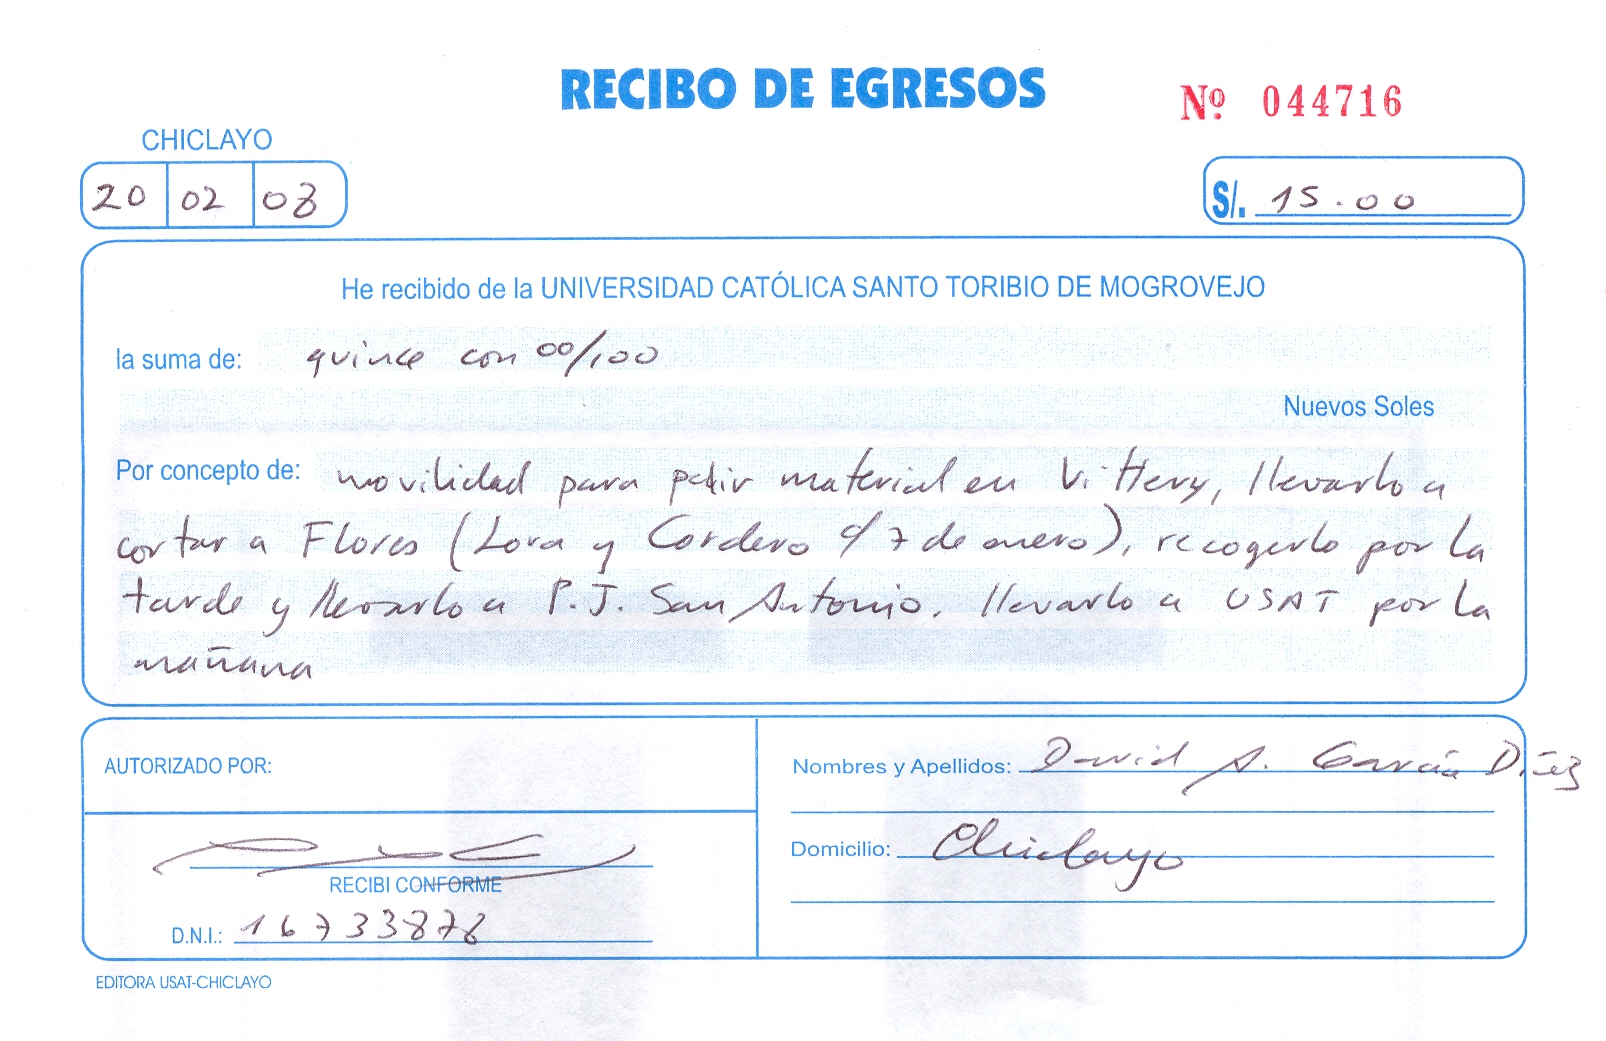 RECIBO DE EGRESOS
Nº 044716
CHICLAYO
20 02 08
S/. 15.00
He recibido de la UNIVERSIDAD CATÓLICA SANTO TORIBIO DE MOGROVEJO
la suma de: quince con 00/100
Nuevos Soles
Por concepto de: movilidad para pedir material en Vittery, llevarlo a
cortar a Flores (Lora y Cordero c/ 7 de enero), recogerlo por la
tarde y llevarlo a P.J. San Antonio. llevarlo a USAT por la
mañana
AUTORIZADO POR:
RECIBI CONFORME
D.N.I.: 16733876
Nombres y Apellidos: David A. García Díez
Domicilio: Chiclayo
EDITORA USAT-CHICLAYO